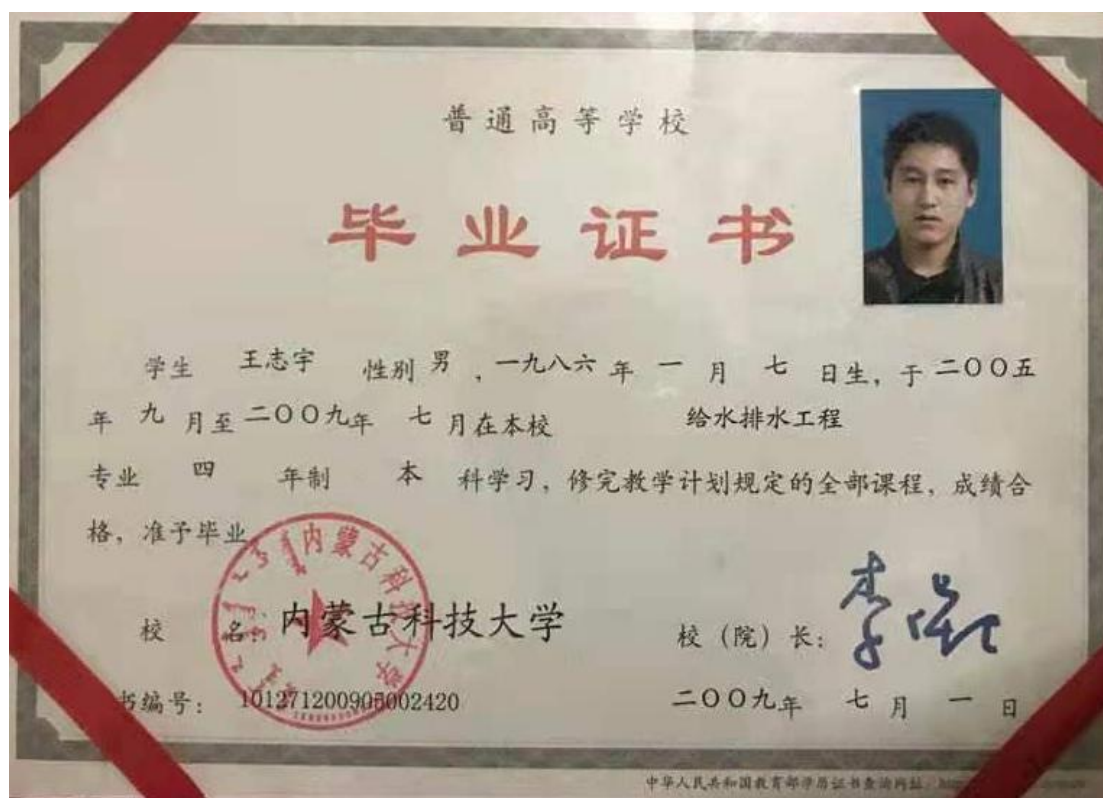 普通高等学校
毕业证书
学生 王志宇 性别 男 ,一九八六 年 一 月 七 日生, 于 二〇〇五
年 九 月至 二〇〇九年 七 月在本校 给水排水工程
专业 四 年制 本 科学习, 修完教学计划规定的全部课程, 成绩合
格, 准予毕业
内蒙古科技大学
校 名: 内蒙古科技大学 校 (院) 长:
书编号: 101271200905002420 二〇〇九年 七 月 一 日
中华人民共和国教育部学历证书查询网址: